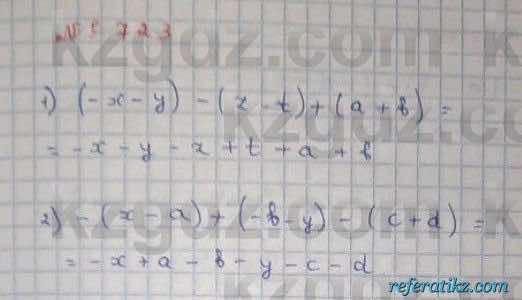 №5.723
kzgdz.com
1) (-x-y) - (z-t)+(a+b) =
= -x - y - z + t + a + b
2) -(x-a)+(-b-y)-(c+d) =
= -x+a-b-y-c-d
referatikz.com